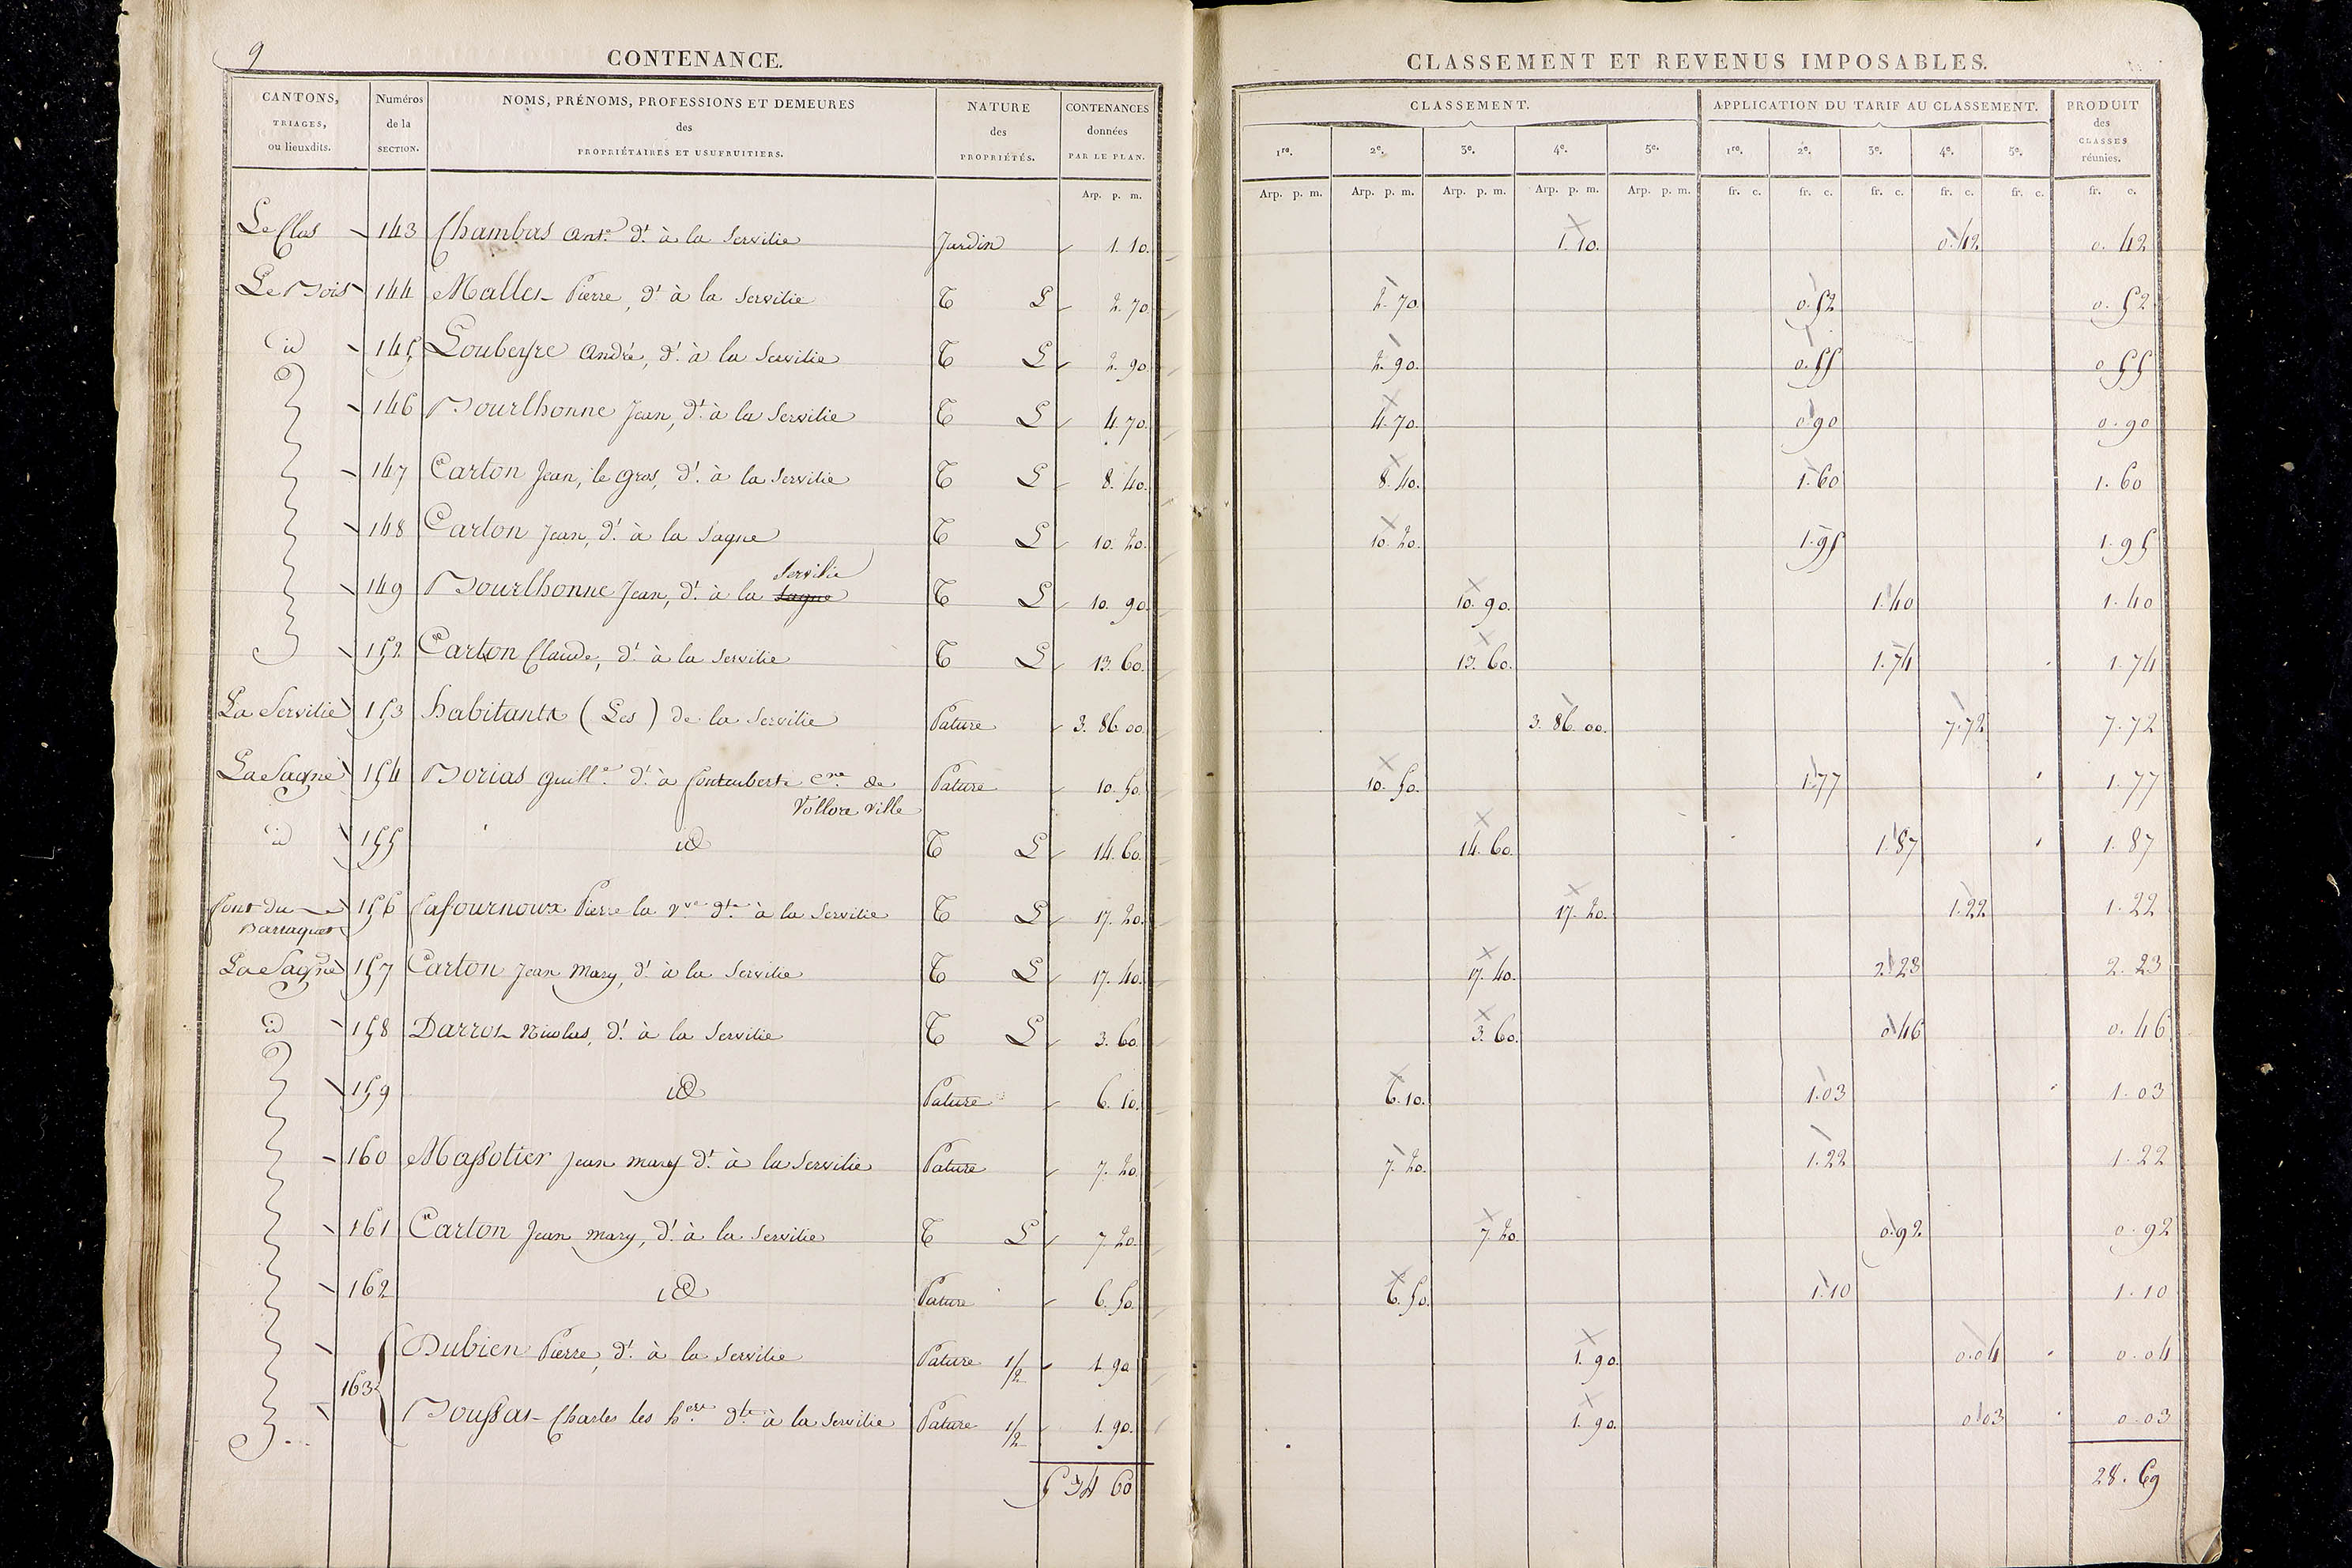 9
CONTENANCE.
CANTONS, TRIAGES, ou lieuxdits. | Numéros de la SECTION. | NOMS, PRÉNOMS, PROFESSIONS ET DEMEURES des PROPRIÉTAIRES ET USUFRUITIERS. | NATURE des PROPRIÉTÉS. | CONTENANCES données PAR LE PLAN.
Arp. p. m.
CLASSEMENT ET REVENUS IMPOSABLES.
CLASSEMENT. | APPLICATION DU TARIF AU CLASSEMENT. | PRODUIT des CLASSES réunies.
1re. 2e. 3e. 4e. 5e. | 1re. 2e. 3e. 4e. 5e.
Arp. p. m. Arp. p. m. Arp. p. m. Arp. p. m. Arp. p. m. | fr. c. fr. c. fr. c. fr. c. fr. c. | fr. c.
Le Clos 143 Chambas Ant.e d.t à la Servilie Jardin 1. 10. | 1. 10. | 0. 42 | 0. 42
Le Bois 144 Mallet Pierre, d.t à la Servilie T L 2. 70. | 2. 70. | 0. 52 | 0. 52
id 145 Loubeyre André, d.t à la Servilie T L 2. 90. | 2. 90. | 0. 55 | 0. 55
146 Bourlhonne Jean, d.t à la Servilie T L 4. 70. | 4. 70. | 0. 90 | 0. 90
147 Carton Jean, le Gros, d.t à la Servilie T L 8. 40. | 8. 40. | 1. 60 | 1. 60
148 Carton Jean, d.t à la Sagne T L 10. 20. | 10. 20. | 1. 95 | 1. 95
Servilie
149 Bourlhonne Jean, d.t à la Sagne T L 10. 90. | 10. 90. | 1. 40 | 1. 40
152 Carton Claude, d.t à la Servilie T L 13. 60. | 13. 60. | 1. 74 | 1. 74
La Servilie 153 habitants (Les) de la Servilie Pature 3. 86. 00. | 3. 86. 00. | 7. 72 | 7. 72
La Sagne 154 Borias Guill.e d.t à C.ne de Pature 10. 50. | 10. 50. | 1. 77 | 1. 77
Vollore Ville
id 155 id T L 14. 60. | 14. 60. | 1. 87 | 1. 87
Font du 156 Cafournoux Pierre la v.ve d.te à la Servilie T L 17. 20. | 17. 20. | 1. 22 | 1. 22
Barraquet
La Sagne 157 Carton Jean Mary, d.t à la Servilie T L 17. 40. | 17. 40. | 2. 23 | 2. 23
id 158 Darrot Nicolas, d.t à la Servilie T L 3. 60. | 3. 60. | 0. 46 | 0. 46
159 id Pature 6. 10. | 6. 10. | 1. 03 | 1. 03
160 Massotier Jean mary d.t à la Servilie Pature 7. 20. | 7. 20. | 1. 22 | 1. 22
161 Carton Jean mary, d.t à la Servilie T L 7. 20. | 7. 20. | 0. 92 | 0. 92
162 id Pature 6. 50. | 6. 50. | 1. 10 | 1. 10
Dubien Pierre, d.t à la Servilie Pature 1/2 1. 90. | 1. 90. | 0. 04 | 0. 04
163
Boussat Charles les h.ers d.ts à la Servilie Pature 1/2 1. 90. | 1. 90. | 0. 03 | 0. 03
5 34 60 | 28. 69